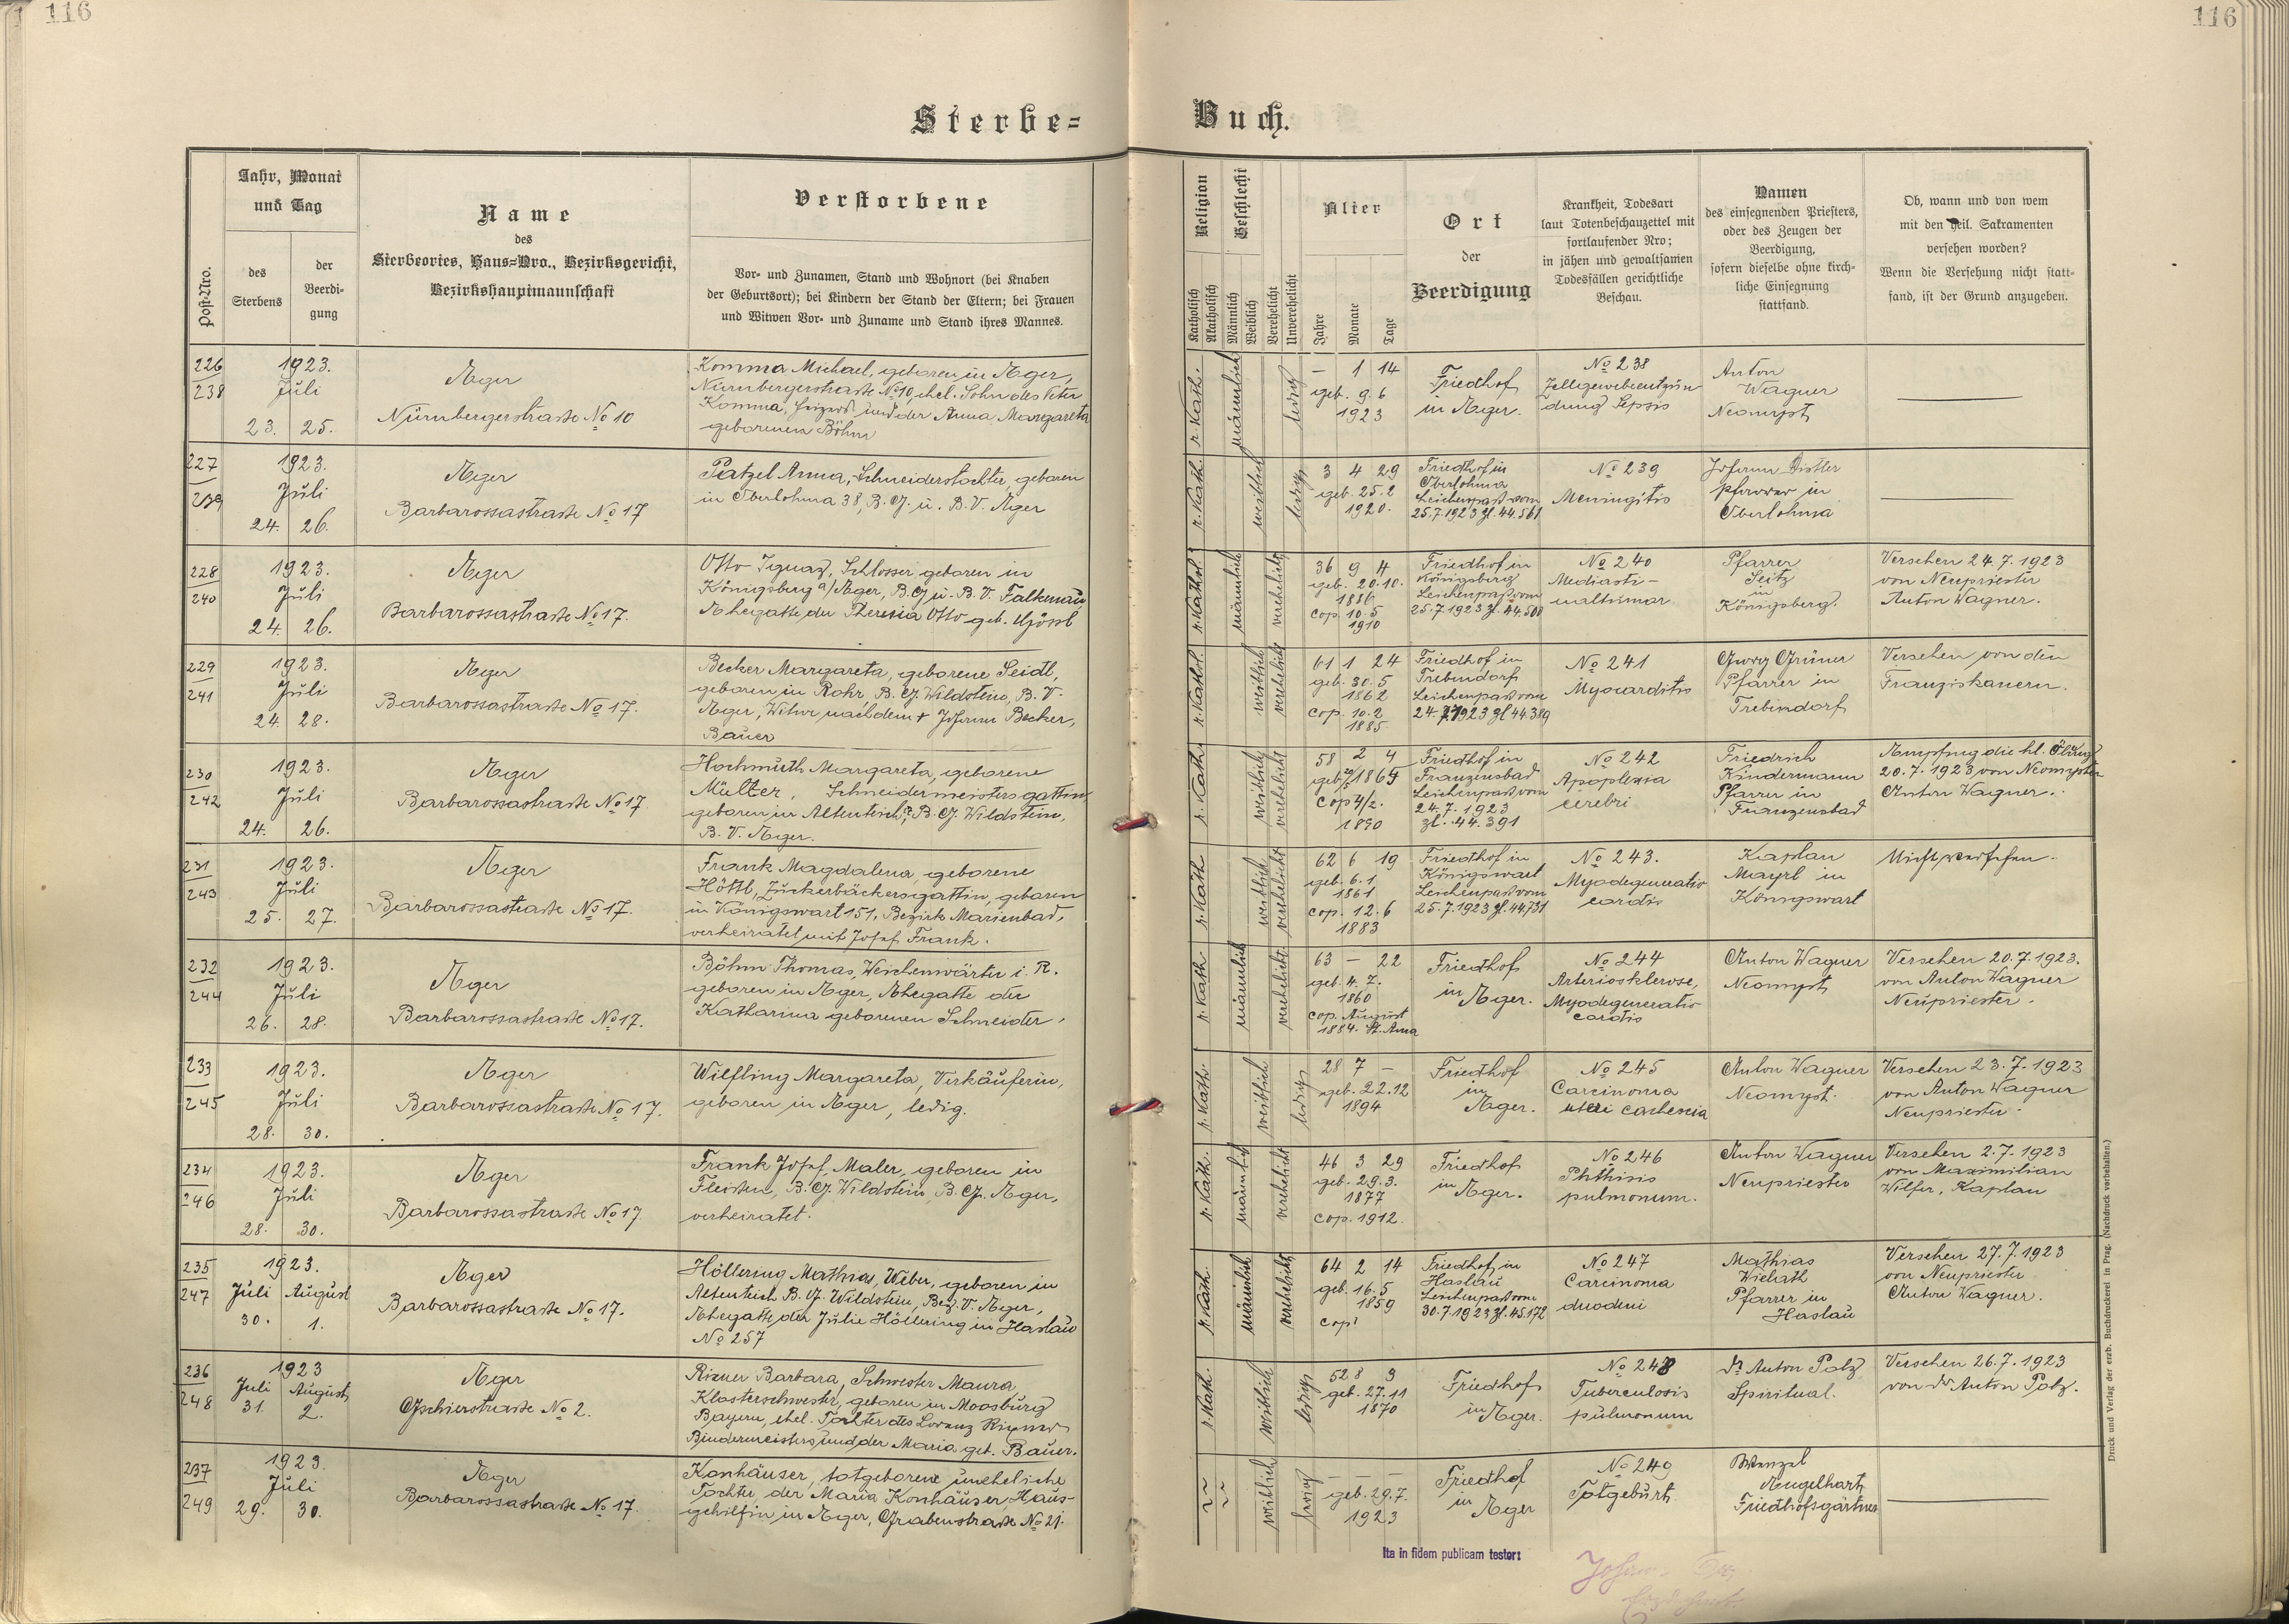 116
116
Sterbe-
Buch.
Post-Nro.
Jahr, Monat
und Tag
des
Sterbens
der
Beerdi-
gung
Name
des
Sterbeortes, Haus-Nro., Bezirksgericht,
Bezirkshauptmannschaft
Verstorbene
Vor- und Zunamen, Stand und Wohnort (bei Knaben
der Geburtsort); bei Kindern der Stand der Eltern; bei Frauen
und Witwen Vor- und Zuname und Stand ihres Mannes.
Religion
Katholisch
Akatholisch
Geschlecht
Männlich
Weiblich
Verehelicht
Unverehelicht
Alter
Jahre
Monate
Tage
Ort
der
Beerdigung
Krankheit, Todesart
laut Totenbeschauzettel mit
fortlaufender Nro;
in jähen und gewaltsamen
Todesfällen gerichtliche
Beschau.
Namen
des einsegnenden Priesters,
oder des Zeugen der
Beerdigung,
sofern dieselbe ohne kirch-
liche Einsegnung
stattfand.
Ob, wann und von wem
mit den heil. Sakramenten
versehen worden?
Wenn die Versehung nicht statt-
fand, ist der Grund anzugeben.
226
238
1923.
Juli
23. 25.
Eger
Nürnbergerstraße No 10
Komma Michael, geboren in Eger,
Nürnbergerstraße No 10, ehel. Sohn des Peter
Komma, Heizers und der Anna Margareta
geborenen Böhm
r. Kath.
männlich
ledig
– 1 14
geb. 9. 6
1923
Friedhof
in Eger.
No 238
Zellgewebeentzün
dung Sepsis
Anton
Wagner
Neomyst
227
239
1923.
Juli
24. 26.
Eger
Barbarossastraße No 17
Patzel Anna, Schneiderstochter, geboren
in Oberlohma 38, B. G. u. B. V. Eger
r. Kath.
weiblich
ledig
3 4 29
geb. 25. 2
1920.
Friedhof in
Oberlohma
Leichenpaß vom
25. 7. 1923 Zl. 44.561
No 239
Meningitis
Johann Distler
Pfarrer in
Oberlohma
228
240
1923.
Juli
24. 26.
Eger
Barbarossastraße No 17.
Otto Ignaz, Schlosser geboren in
Königsberg a/Eger, B. G. u. B. V. Falkenau,
Ehegatte der Theresia Otto geb. Gössl
r. Kathol.
männlich
verehelicht
36 9 4
geb. 20. 10.
1886
cop. 10. 5
1910
Friedhof in
Königsberg
Leichenpaß vom
25. 7. 1923 Zl. 44.508
No 240
Mediasti-
naltumor
Pfarrer
Seitz
in
Königsberg.
Versehen 24. 7. 1923
von Neupriester
Anton Wagner.
229
241
1923.
Juli
24. 28.
Eger
Barbarossastraße No 17.
Becker Margareta, geborene Seidl,
geboren in Rohr, B. G. Wildstein, B. V.
Eger, Witwe nach dem + Johann Becker,
Bauer
r. Kathol.
weiblich
verehelicht
61 1 24
geb. 30. 5
1862
cop. 10. 2
1885
Friedhof in
Trebendorf
Leichenpaß vom
24. 7. 1923 Zl 44.389
No 241
Myocarditis
Georg Grüner
Pfarrer in
Trebendorf
Versehen von den
Franziskanern.
230
242
1923.
Juli
24. 26.
Eger
Barbarossastraße No 17.
Hochmuth Margareta, geborene
Müller, Schneidermeistersgattin,
geboren in Altenteich, B. G. Wildstein,
B. V. Eger.
r. Kath
weiblich
verehelicht
58 2 4
geb. 20/5 1864
cop 4/2.
1890
Friedhof in
Franzensbad
Leichenpaß vom
24. 7. 1923
Zl. 44.391
No 242
Apoplexia
cerebri
Friedrich
Kindermann
Pfarrer in
Franzensbad
Empfing die hl. Ölung
20. 7. 1923 von Neomysten
Anton Wagner.
231
243
1923.
Juli
25. 27.
Eger
Barbarossastraße No 17.
Frank Magdalena, geborene
Höttl, Zuckerbäckersgattin, geboren
in Königswart 151, Bezirk Marienbad,
verheiratet mit Josef Frank.
r. Kath
weiblich
verehelicht
62 6 19
geb. 6. 1
1861
cop. 12. 6
1883
Friedhof in
Königswart
Leichenpaß vom
25. 7. 1923 Zl. 44.731
No 243.
Myodegeneratio
cordis
Kaplan
Mayrl in
Königswart
Nicht versehen.
232
244
1923.
Juli
26. 28.
Eger
Barbarossastraße No 17.
Böhm Thomas, Weichenwärter i. R.
geboren in Eger, Ehegatte der
Katharina geborenen Schneider.
r. Kath
männlich
verehelicht
63 – 22
geb. 4. 7.
1860
cop. August
1884. St. Anna
Friedhof
in Eger.
No 244
Arteriosklerose,
Myodegeneratio
cordis
Anton Wagner
Neomyst
Versehen 20. 7. 1923.
von Anton Wagner
Neupriester.
233
245
1923.
Juli
28. 30.
Eger
Barbarossastraße No 17.
Wilfling Margareta, Verkäuferin,
geboren in Eger, ledig.
r. Kath.
weiblich
ledig
28 7 –
geb. 22. 12
1894
Friedhof
in
Eger.
No 245
Carcinoma
uteri cachexia
Anton Wagner
Neomyst.
Versehen 23. 7. 1923
von Anton Wagner
Neupriester.
234
246
1923.
Juli
28. 30.
Eger
Barbarossastraße No 17
Frank Josef, Maler, geboren in
Fleißen, B. G. Wildstein B. G. Eger,
verheiratet.
r. Kath.
männlich
verehelicht
46 3 29
geb. 29. 3.
1877
cop. 1912.
Friedhof
in Eger.
No 246
Phthisis
pulmonum.
Anton Wagner
Neupriester
Versehen 2. 7. 1923
von Maximilian
Wilfer, Kaplan
235
247
1923.
Juli August
30. 1.
Eger
Barbarossastraße No 17.
Höllering Mathias, Weber, geboren in
Altenteich B. G. Wildstein, Bez. V. Eger,
Ehegatte der Julie Höllering in Haslau
No 257
r. Kath.
männlich
verehelicht
64 2 14
geb. 16. 5
1859
cop.
Friedhof in
Haslau
Leichenpaß vom
30. 7. 1923 Zl. 45.172
No 247
Carcinoma
duodeni
Mathias
Pfarrer in
Haslau
Versehen 27. 7. 1923
von Neupriester
Anton Wagner.
236
248
1923
Juli August
31. 2.
Eger
Gschierstraße No 2.
Rixner Barbara, Schwester Maura
Klosterschwester, geboren in Moosburg
Bayern, ehel. Tochter des Lorenz Rixner
Bindermeisters und der Maria geb. Bauer.
r. Kath.
weiblich
ledig
52 8 3
geb. 27. 11
1870
Friedhof
in Eger.
No 248
Tuberculosis
pulmonum
Dr Anton Polz
Spiritual.
Versehen 26. 7. 1923
von Dr Anton Polz.
237
249
1923.
Juli
29. 30.
Eger
Barbarossastraße No 17.
Konhäuser, totgeborene uneheliche
Tochter der Maria Konhäuser, Haus-
gehilfin in Eger, Grabenstraße No 21.
weiblich
ledig
– – –
geb. 29. 7.
1923
Friedhof
in
Eger
No 249
Totgeburt
Wenzel
Engelhart
Friedhofsgärtner
Ita in fidem publicam testor:
Druck und Verlag der erzb. Buchdruckerei in Prag. (Nachdruck vorbehalten.)